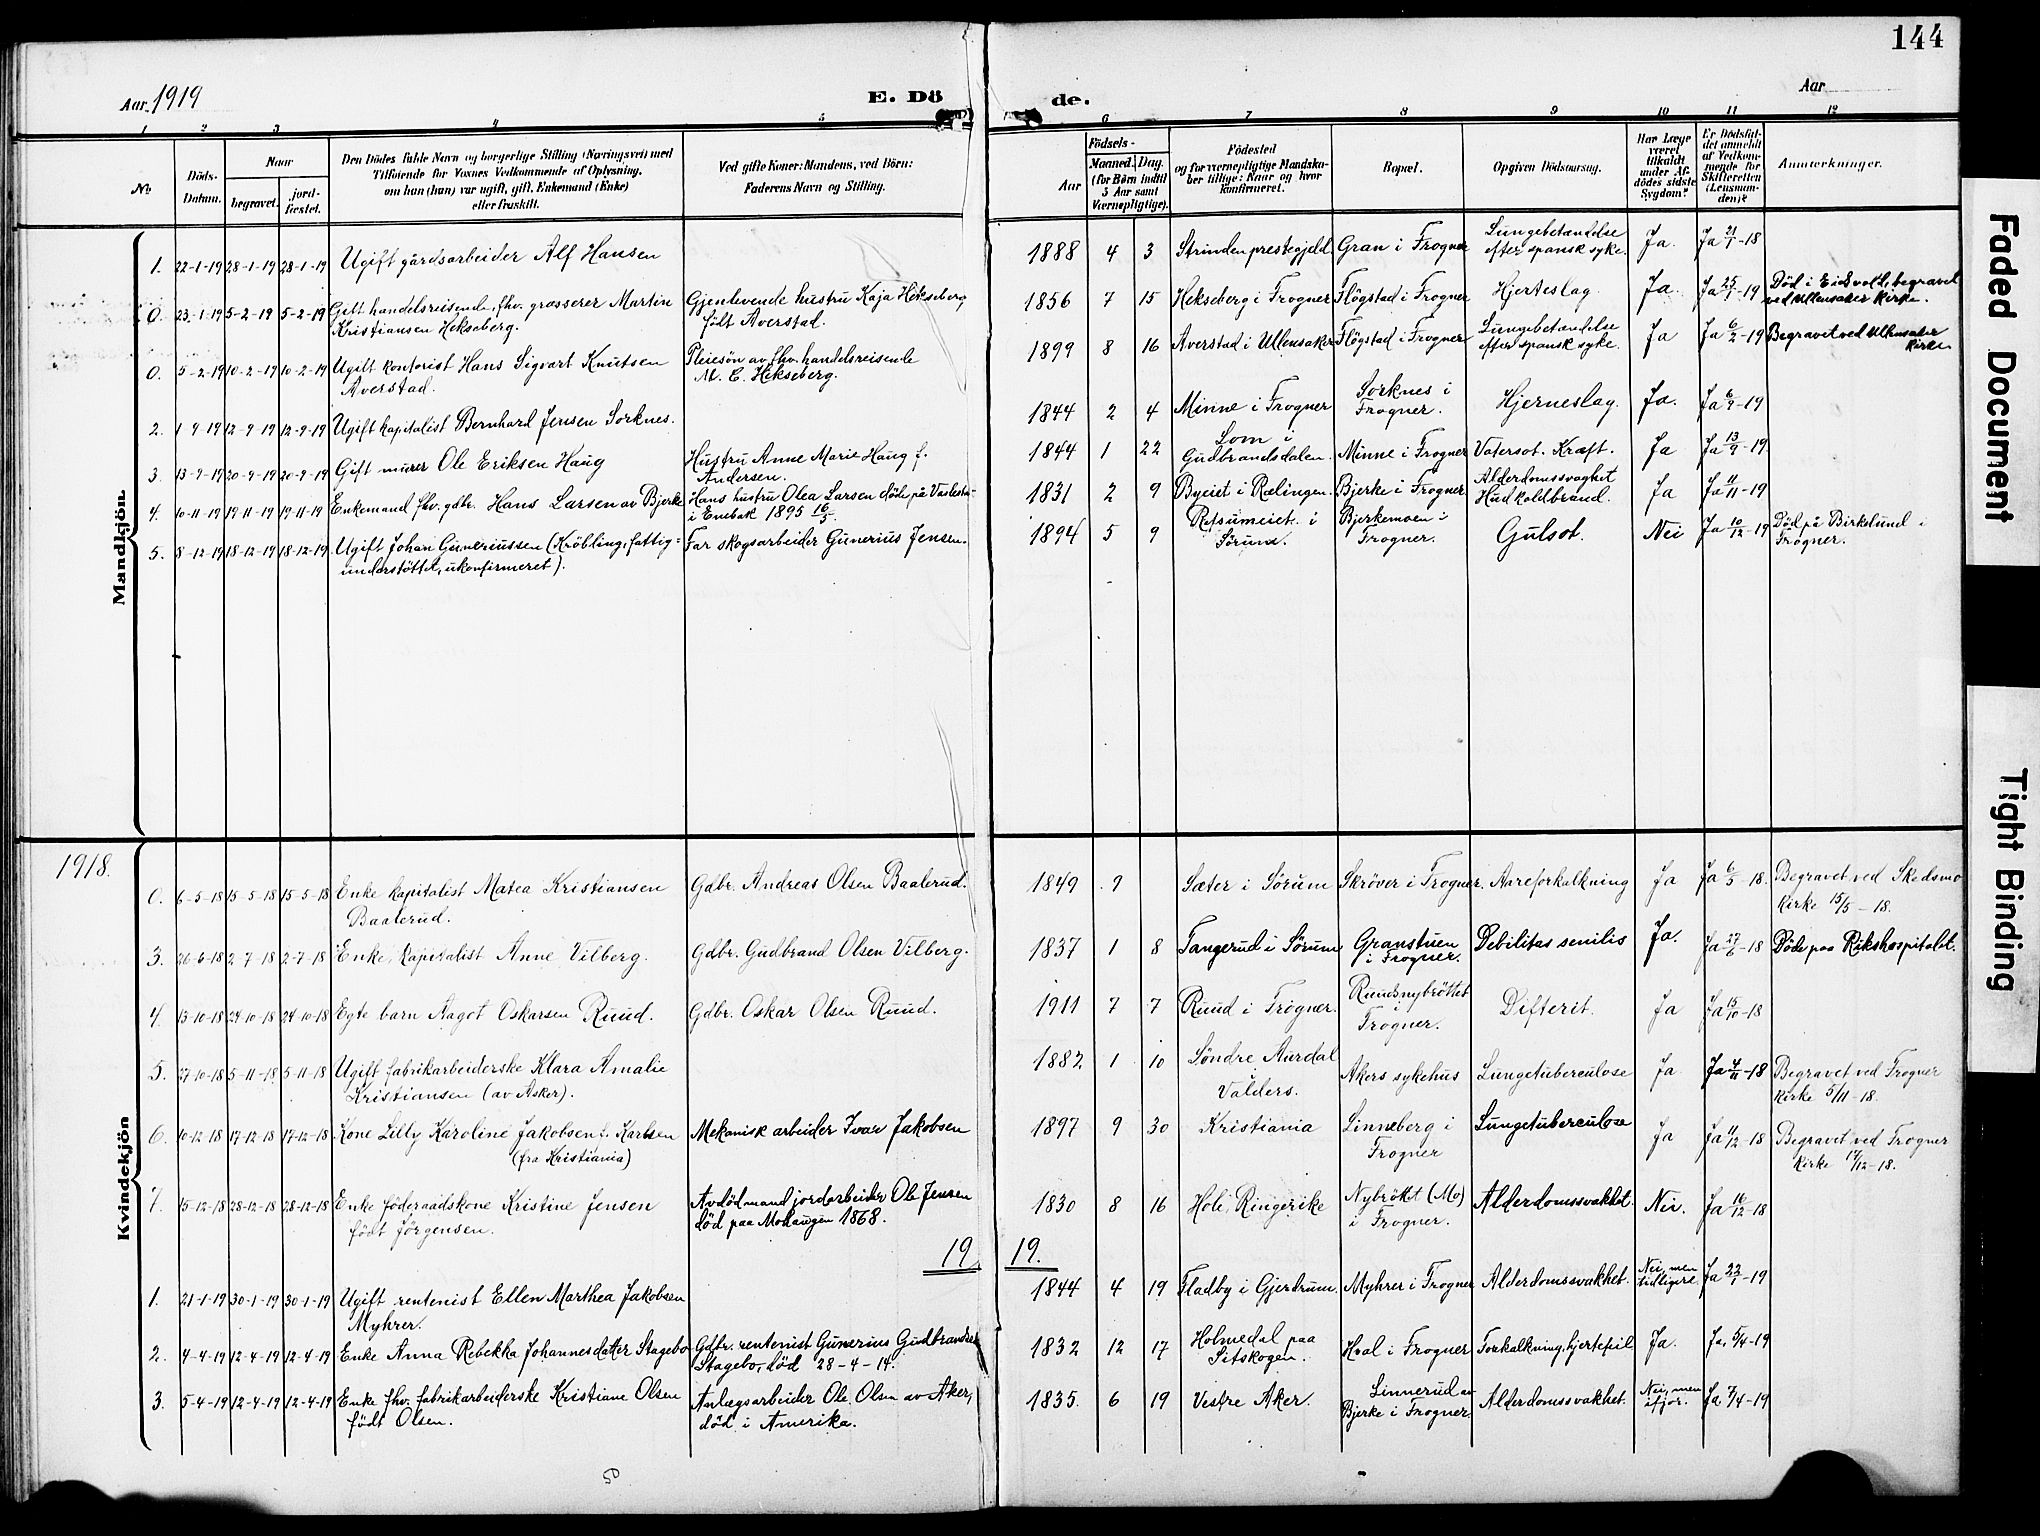 144
Aar 1919
E. Dö
de.
Aar
1 2 3 4 5 6 7 8 9 10 11 12
No
Döds-Datum.
Naar
begravet.
jord-fæstet.
Den Dödes fulde Navn og borgerlige Stilling (Næringsvei) med
Tilföiende for Voxnes Vedkommende af Oplysning,
om han (hun) var ugift, gift, Enkemand (Enke)
eller fraskilt.
Ved gifte Koner: Mandens, ved Börn:
Faderens Navn og Stilling.
Födsels-
Aar
Maaned. Dag.
(for Börn indtil
5 Aar samt
Værnepligtige).
Födested
og for værnepligtige Mandska-
ber tillige: Naar og hvor
konfirmeret.
Bopæl.
Opgiven Dödsaarsag.
Har Læge
været
tilkaldt
under Af-
dödes sidste
Sygdom?
Er Dödsfal-
det anmeldt
af Vedkom-
mende for
Skifteretten
(Lensman-
den)?
Anmærkninger.
Mandkjön
1. 22-1-19 28-1-19 28-1-19 Ugift gårdsarbeider Alf Hansen 1888 4 3 Strinden prestegjeld Gran i Frogner Lungebetændelse
efter spansk syke. Ja. Ja 21/1-18
0. 23-1-19 5-2-19 5-2-19 Gift handelsreisende, fhv. grosserer Martin
Kristiansen Hekseberg. Gjenlevende hustru Kaja Hekseberg
født Averstad. 1856 7 15 Hekseberg i Frogner Flögstad i Frogner Hjerteslag. Ja. Ja 25/1-19 Död i Eidsvold, begravet
ved Ullensaker Kirke.
0. 5-2-19 10-2-19 10-2-19 Ugift kontorist Hans Sigvart Knutsen
Averstad. Pleiesön av fhv. handelsreisende
M. C. Hekseberg. 1899 8 16 Averstad i Ullensaker Flögstad i Frogner Lungebetændelse
efter spansk syke. Ja Ja 6/2-19 Begravet ved Ullensaker
Kirke
2. 1-9-19 12-9-19 12-9-19 Ugift kapitalist Bernhard Jensen Sorknes. 1844 2 4 Minne i Frogner Sorknes i
Frogner. Hjerneslag. Ja. Ja 6/9-19
3 13-9-19 20-9-19 20-9-19 Gift murer Ole Eriksen Haug Hustru Anne Marie Haug f.
Andersen. 1844 1 22 Lom i
Gudbrandsdalen. Minne i Frogner Vatersot. Kræft. Ja Ja 13/9-19.
4. 10-11-19 19-11-19 19-11-19 Enkemand fhv. gdbr. Hans Larsen av Bjerke Hans hustru Olea Larsen döde på
i Enebak 1895 16/5. 1831 2 9 Byeiet i Rælingen. Bjerke i Frogner Alderdomssvaghet
Hudkoldbrand. Ja Ja 11/11-19
5. 8-12-19 18-12-19 18-12-19 Ugift Johan Guneriussen (Kröbling, fattig-
understöttet, ukonfirmeret). Far skogsarbeider Gunerius Jensen. 1894 5 9 Refsumeiet i
Sörum. Bjerkemoen i
Frogner. Gulsot. Nei Ja 10/12-19 Död på Birkelund i
Frogner.
1918.
Kvindekjön
0. 6-5-18 15-5-18 15-5-18 Enke kapitalist Matea Kristiansen
Baalerud. Gdbr. Andreas Olsen Baalerud. 1849 9 Sæter i Sörum Skröver i Frogner. Aareforkalkning Ja Ja 6/5-18. Begravet ved Skedsmo
kirke 15/5-18.
3. 26-6-18 2-7-18 2-7-18 Enke, kapitalist Anne Vilberg. Gdbr. Gudbrand Olsen Vilberg. 1837 1 8 Tangerud i Sörum Granstuen
i Frogner. Debilitas senilis Ja. Ja 27/6-18 Döde paa Rikshospitalet.
4. 13-10-18 24-10-18 24-10-18 Egte barn Aagot Oskarsen Ruud. Gdbr. Oskar Olsen Ruud. 1911 7 7 Ruud i Frogner. Ruudsnybröttet
i
Frogner. Difterit. Ja Ja 15/10-18
5. 27-10-18 5-11-18 5-11-18 Ugift fabrikarbeiderske Klara Amalie
Kristiansen (av Asker). 1882 1 10 Söndre Aurdal
i
Valders. Akers sykehus Lungetuberculose Ja. Ja 4/11-18 Begravet ved Frogner
kirke 5/11-18.
6. 10-12-18 17-12-18 17-12-18 Kone Lilly Karoline Jakobsen f. Karlsen
(fra Kristiania) Mekanisk arbeider Ivar Jakobsen 1897 9 30 Kristiania Linneberg i
Frogner Lungetuberculose Ja Ja 11/12-18 Begravet ved Frogner
Kirke 17/12-18.
7. 15-12-18 28-12-18 28-12-18 Enke föderaadskone Kristine Jensen
födt Jörgensen. Avdöd mand jordarbeider Ole Jensen
död paa Mohaugen 1868. 1830 8 16 Hole, Ringerike Nybröttet (Mo)
i Frogner. Alderdomssvakhet. Nei. Ja 16/12-18
19 19.
1. 21-1-19 30-1-19 30-1-19 Ugift rentenist Ellen Marthea Jakobsen
Myhrer. 1844 4 19 Fladby i Gjerdrum. Myhrer i Frogner Alderdomssvakhet. Nei, men
tidligere Ja 22/1-19
2. 4-4-19 12-4-19 12-4-19 Enke Anna Rebekka Johannesdatter Stagebo Gdbr. rentenist Gunerius Gudbrandsen
Stagebo, död 28-4-14. 1832 12 17 Holmedal paa
Sitskogen. Hval i Frogner Forkalkning, hjertefeil Ja. Ja, 5/4-19
3. 5-4-19 12-4-19 12-4-19 Enke fhv. fabrikarbeiderske Kristiane Olsen
födt Olsen. Anlægsarbeider Ole Olsen av Aker,
död i Amerika. 1835. 6 19 Vestre Aker. Linnerud av
Bjerke i Frogner Alderdomssvakhet. Nei, men
ifjor. Ja 7/4-19
Faded Document
Tight Binding